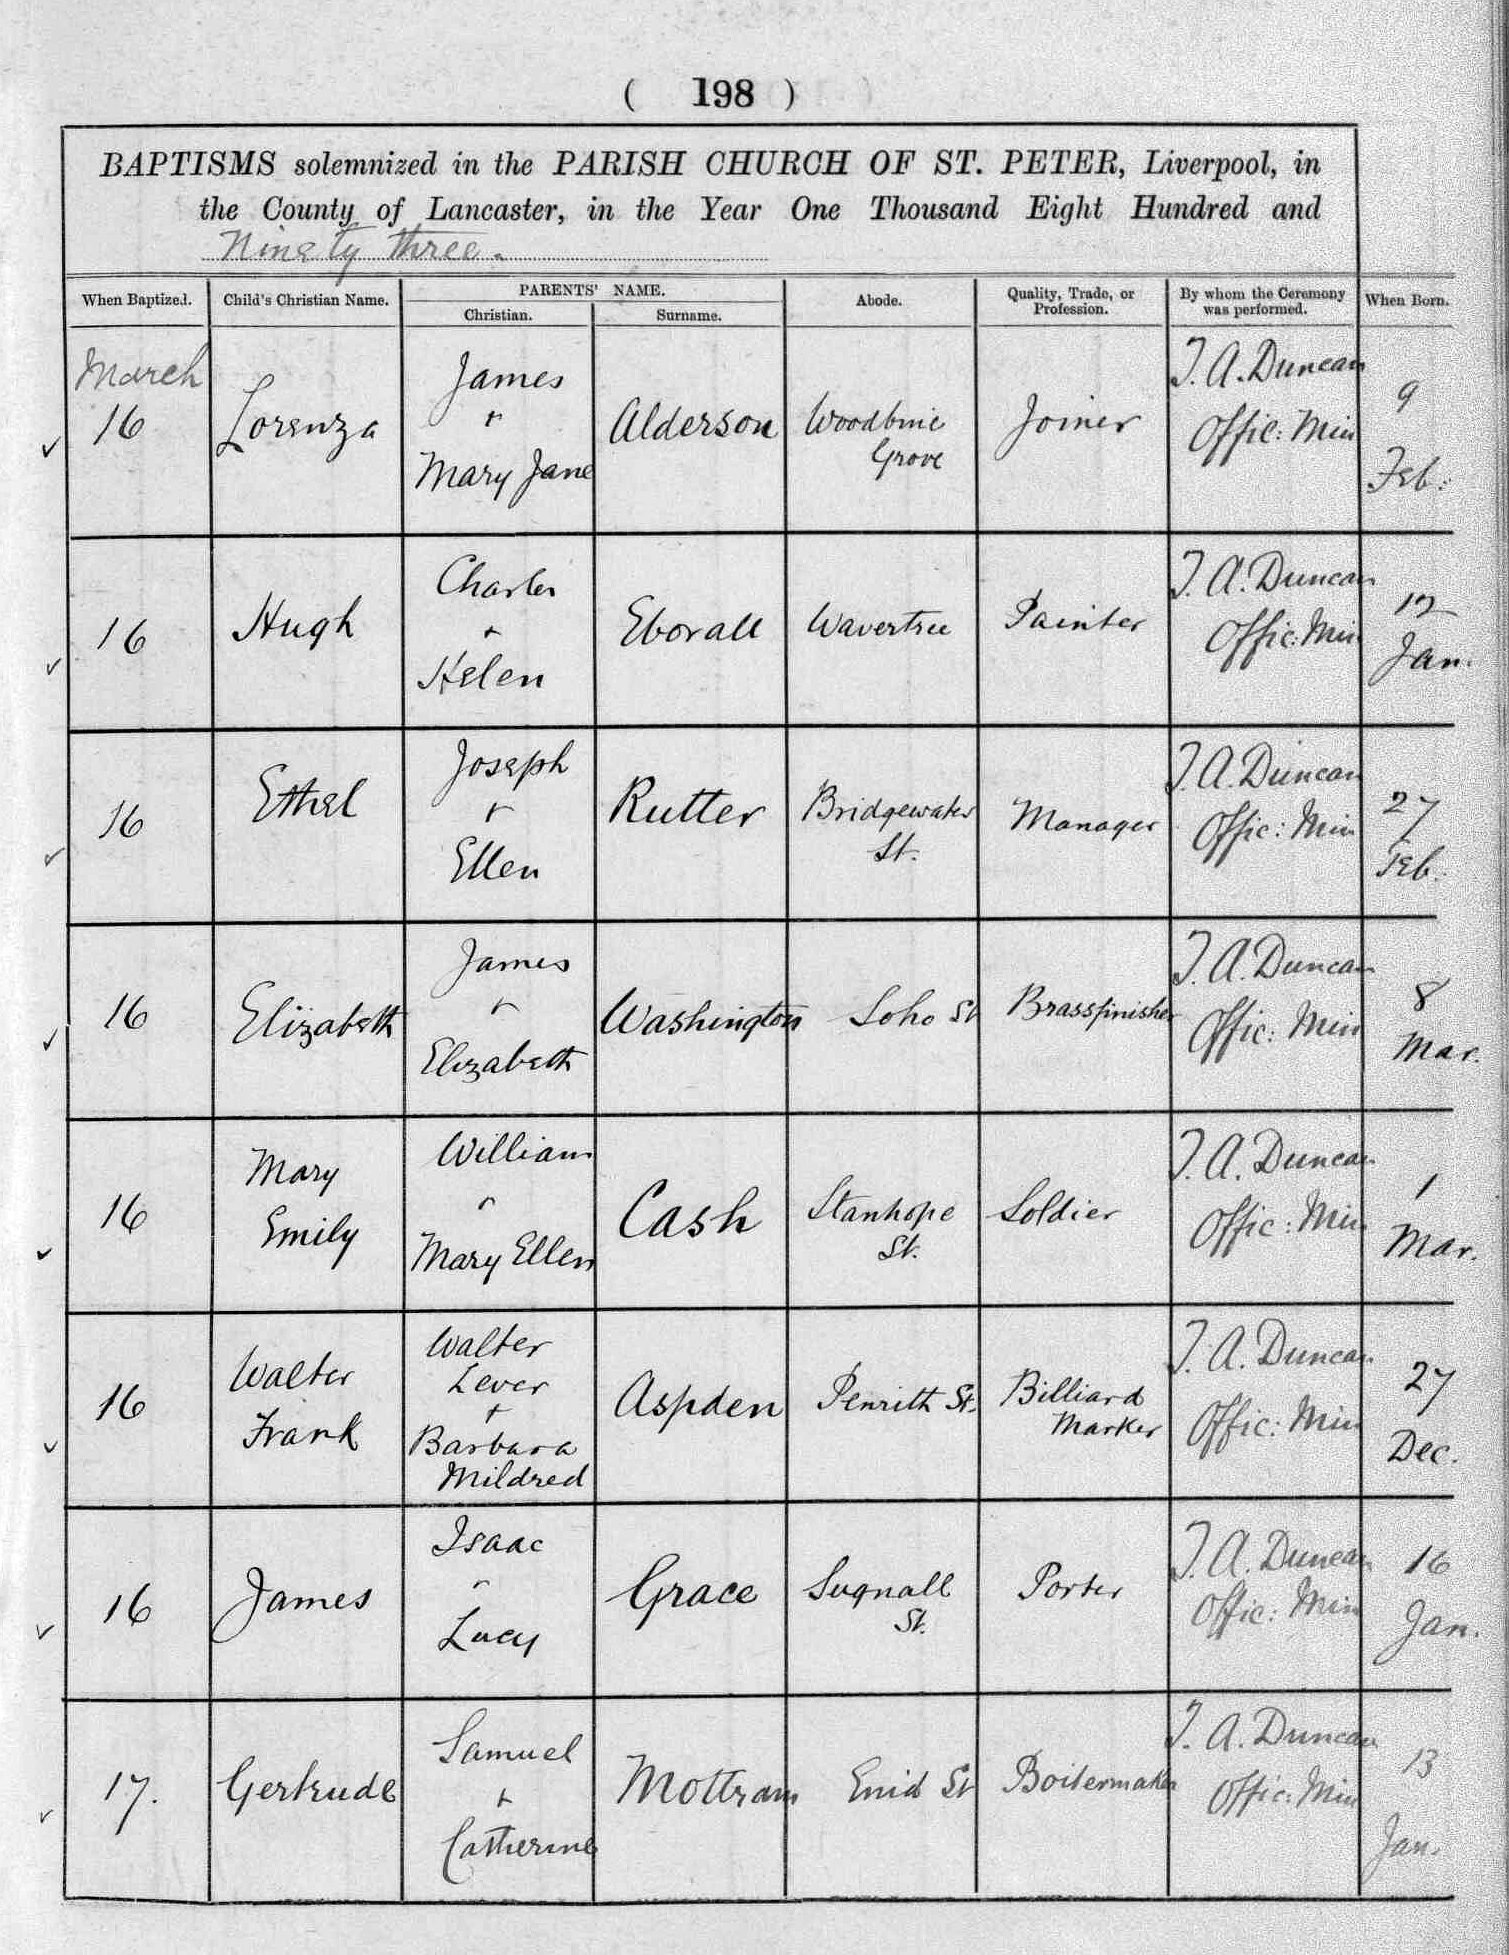 ( 198 )
BAPTISMS solemnized in the PARISH CHURCH OF ST. PETER, Liverpool, in
the County of Lancaster, in the Year One Thousand Eight Hundred and
Ninety three.
When Baptized. Child's Christian Name. PARENTS' NAME. Abode. Quality, Trade, or Profession. By whom the Ceremony was performed. When Born.
Christian. Surname.
March
16
Lorenza
James
+
Mary Jane
Alderson
Woodbine
Grove
Joiner
T. A. Duncan
Offic: Min
9
Feb:
16
Hugh
Charles
+
Helen
Eborall
Wavertree
Painter
T. A. Duncan
Offic: Min
12
Jan.
16
Ethel
Joseph
+
Ellen
Rutter
Bridgewater
St.
Manager
T. A. Duncan
Offic: Min
27
Feb.
16
Elizabeth
James
+
Elizabeth
Washington
Soho St
Brassfinisher
T. A. Duncan
Offic: Min
8
Mar.
16
Mary
Emily
William
+
Mary Ellen
Cash
Stanhope
St.
Soldier
T. A. Duncan
Offic: Min
1
Mar.
16
Walter
Frank
Walter
Lever
+
Barbara
Mildred
Aspden
Penrith St.
Billiard
Marker
T. A. Duncan
Offic: Min
27
Dec.
16
James
Isaac
+
Lucy
Grace
Sugnall
St.
Porter
T. A. Duncan
Offic: Min
16
Jan.
17.
Gertrude
Samuel
+
Catherine
Mottram
Enid St
Boilermaker
T. A. Duncan
Offic: Min
13
Jan.